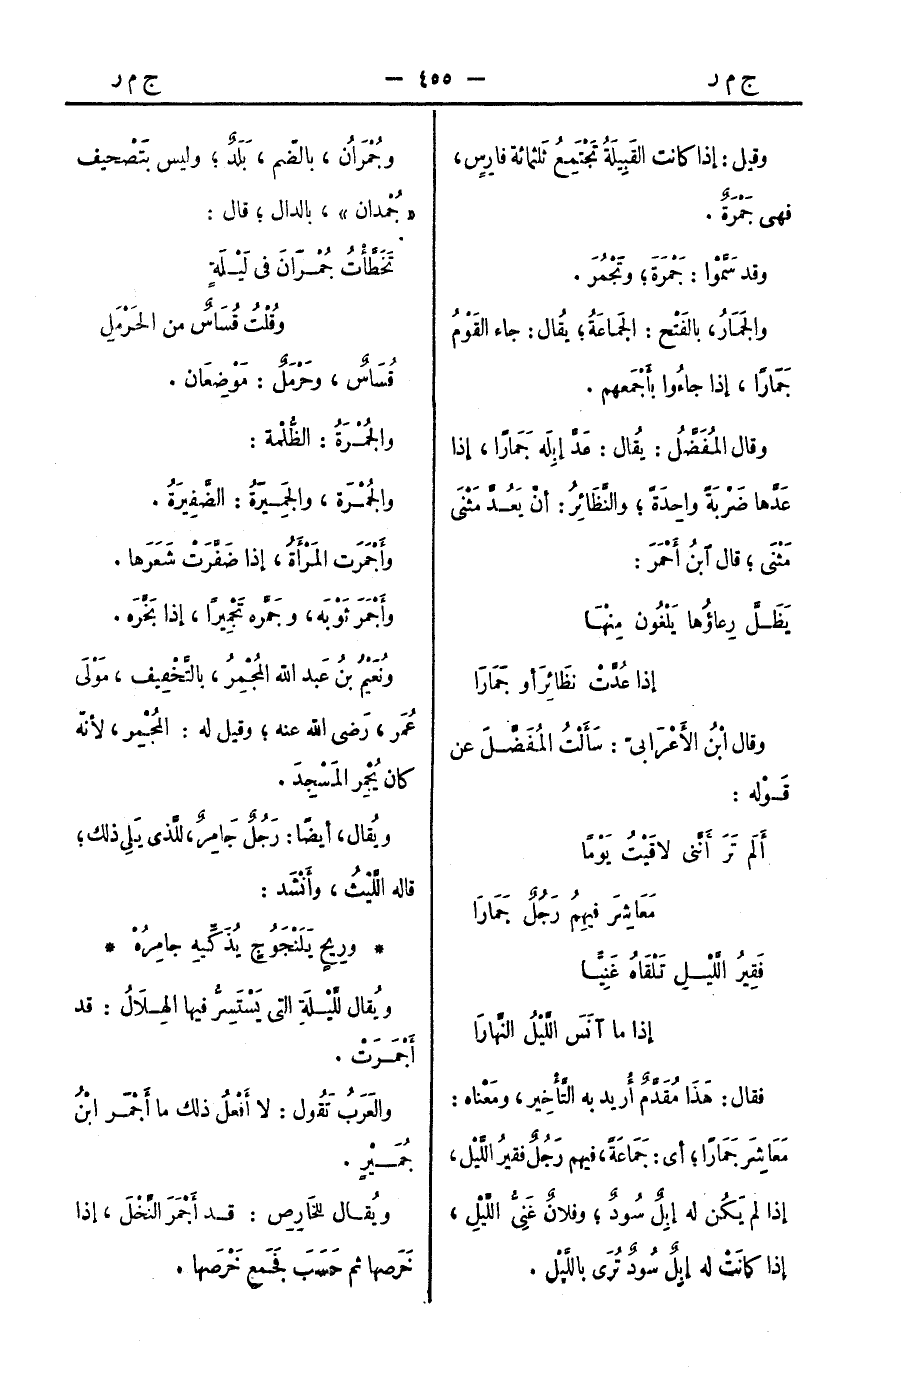 ج م ر — ٤٥٥ — ج م ر
وقيل : إذا كانت القَبِيلَةُ تَجْتَمِعُ ثَلثمائة فارِسٍ ،
فهى جَمْرَةٌ .
وقد سَمَّوْا : جَمْرَةَ ؛ وتَجْمُرَ .
والجَمَارُ ، بالفَتْح : الجَمَاعَةُ ؛ يُقال : جاء القَوْمُ
جَمَارًا ، إذا جاءُوا بأَجْمَعهم .
وقال المُفَضَّلُ : يُقال : عَدَّ إبِلَه جَمَارًا ، إذا
عَدَّها ضَرْبَةً واحِدَةً ؛ والنَّظَائِرُ : أنْ يَعُدَّ مَثْنَى
مَثْنَى ؛ قال ٱبنُ أَحْمَرَ :
يَظَلُّ رِعاؤُها يَلْغُون مِنْهَا
إذا عُدَّتْ نظَائِرَ أو جَمَارَا
وقال ابْنُ الأَعْرَابىّ : سَأَلْتُ المُفَضَّلَ عن
قَوْله :
أَلَم تَرَ أَنَّنى لاقَيْتُ يَوْمًا
مَعَاشِرَ فيهِمُ رَجُلٌ جَمَارَا
فَقِيرُ اللَّيْلِ تَلْقَاهُ غَنِيًّا
إذا ما آنَسَ اللَّيْلُ النَّهارَا
فقال : هَذَا مُقَدَّمٌ أُرِيد به التَّأْخِير ، ومَعْناه :
مَعَاشِرَ جَمَارًا ؛ أى : جَمَاعَةً ، فيهم رَجُلٌ فقيرُ اللَّيْل ،
إذا لم يَكُن له إبِلٌ سُودٌ ؛ وفلانٌ غَنِىُّ اللَّيْلِ ،
إذا كانَتْ له إبِلٌ سُودٌ تُرَى باللَّيْل .
وجُمْرَان ، بالضّم ، بَلَدٌ ؛ وليس بتَصْحيف
« جُمْدان » ، بالدال ؛ قال :
تَخَطَّأْتُ جُمْرَانَ فى لَيْلَةٍ
وقُلْتُ قُسَاسٌ من الحَرْمَلِ
قُسَاسٌ ، وحَرْمَلٌ : مَوْضِعَان .
والجُمْرَةُ : الظُّلْمة :
والجُمْرَة ، والجَمِيرَةُ : الضَّفِيرَةُ .
وأَجْمَرَت المَرْأَةُ ، إذا ضَفَّرَتْ شَعَرَها .
وأَجْمَرَ ثَوْبَه ، وجَمَّره تَجْمِيرًا ، إذا بَخَّرَه .
ونُعَيْمُ بنُ عَبد الله المُجْمِرُ ، بالتَّخْفِيف ، مَوْلَى
عُمَر ، رَضى الله عنه ؛ وقيل له : المُجْمِر ، لأنّه
كان يُجْمِر المَسْجِدَ .
ويُقال ، أيضًا : رَجُلٌ جَامِرٌ ، للَّذى يَلِى ذلك ؛
قاله اللَّيْثُ ، وأَنْشَد :
* ورِيحٍ يَلَنْجَوُجٍ يُذَكِّيهِ جامِرُهْ *
ويُقال للَّيْلَةِ التى يَسْتَسِرُّ فيها الهِلَالُ : قد
أَجْمَرَتْ .
والعَرَبُ تَقُول : لا أَفْعلُ ذلك ما أَجْمَر ابْنُ
جُمَيْرٍ .
ويُقال للخَارِص : قد أَجْمَرَ النَّخْلَ ، إذا
خَرَصها ثم حَسَبَ فَجَمع خَرْصَها .